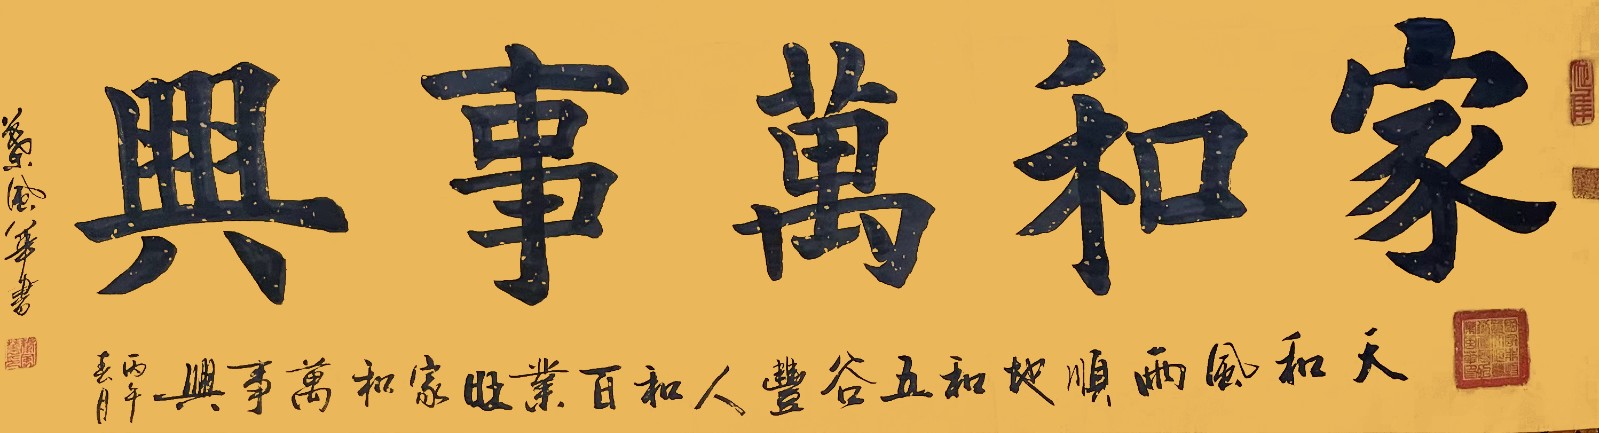 家和萬事興
天和風雨順地和五谷豐人和百業旺家和萬事興
丙午
春月
風華書